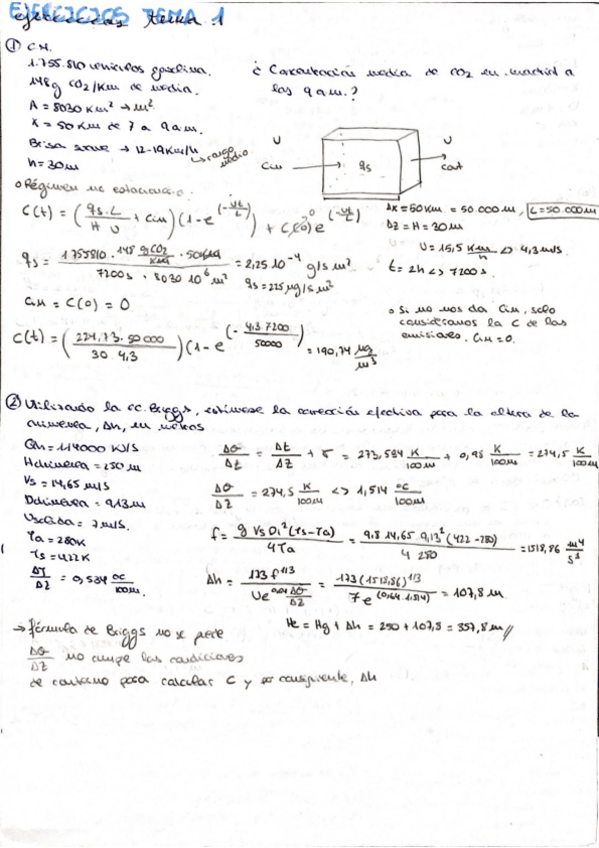 EJERCICIOS TEMA 1
ejercicios tema 1
① C.M.
1.755.810 vehículos gasolina.
148g CO2/Km de media.
A = 8030 Km² → m²
X = 50 Km de 7 a 9 a.m.
Brisa suave → 12-19 Km/h → rango medio
h = 30 m
¿ Concentración media de CO2 en Madrid a
las 9 a.m.?
U
Cin
qs
U
Cout
o Régimen no estacionario:
C(t) = (qs·L / H U + Cin)(1-e^(-Ut/L)) + C(0)e^(-Ut/L)
ΔX = 50 Km = 50.000 m, L = 50.000m
ΔZ = H = 30m
U = 15,5 Km/h <> 4,3 m/s
t = 2h <> 7200s
qs = 1755810 · 148 g CO2/Km · 50Km / 7200s · 8030 10⁶ m² = 2,25 10⁻⁴ g/s m²
qs = 225 μg/s m²
Cin = C(0) = 0
o Si no nos da Cin, solo
consideramos la C de las
emisiones. Cin = 0.
C(t) = (224,73 · 50000 / 30 · 4,3)(1-e^(-4,3·7200/50000)) = 190,74 μg/m³
② Utilizando la ec. Briggs, estímese la corrección efectiva para la altura de la
chimenea, Δh, en metros
Qh = 114000 KJ/S
Hchimenea = 250 m
Vs = 14,65 m/s
Dchimenea = 9,13m
Usalida = 7 m/s.
Ta = 280K
Ts = 422K
ΔT/ΔZ = 0,534 ºC/100m.
Δθ/ΔZ = Δt/ΔZ + Γ = 273,534 K/100m + 0,98 K/100m = 274,5 K/100m
Δθ/ΔZ = 274,5 K/100m <> 1,514 ºC/100m
f = g Vs Di² (Ts-Ta) / 4 Ta = 9,8 14,65 9,13² (422-280) / 4 280 = 1518,86 m⁴/s³
Δh = 173 f^1/3 / U e^(0,64 Δθ/ΔZ) = 173 (1518,86)^1/3 / 7 e^(0,64·1,514) = 107,8 m
He = Hg + Δh = 250 + 107,8 = 357,8 m //
→ fórmula de Briggs no se puede
Δθ/ΔZ no cumple las condiciones
de contorno para calcular C y por consiguiente, Δh